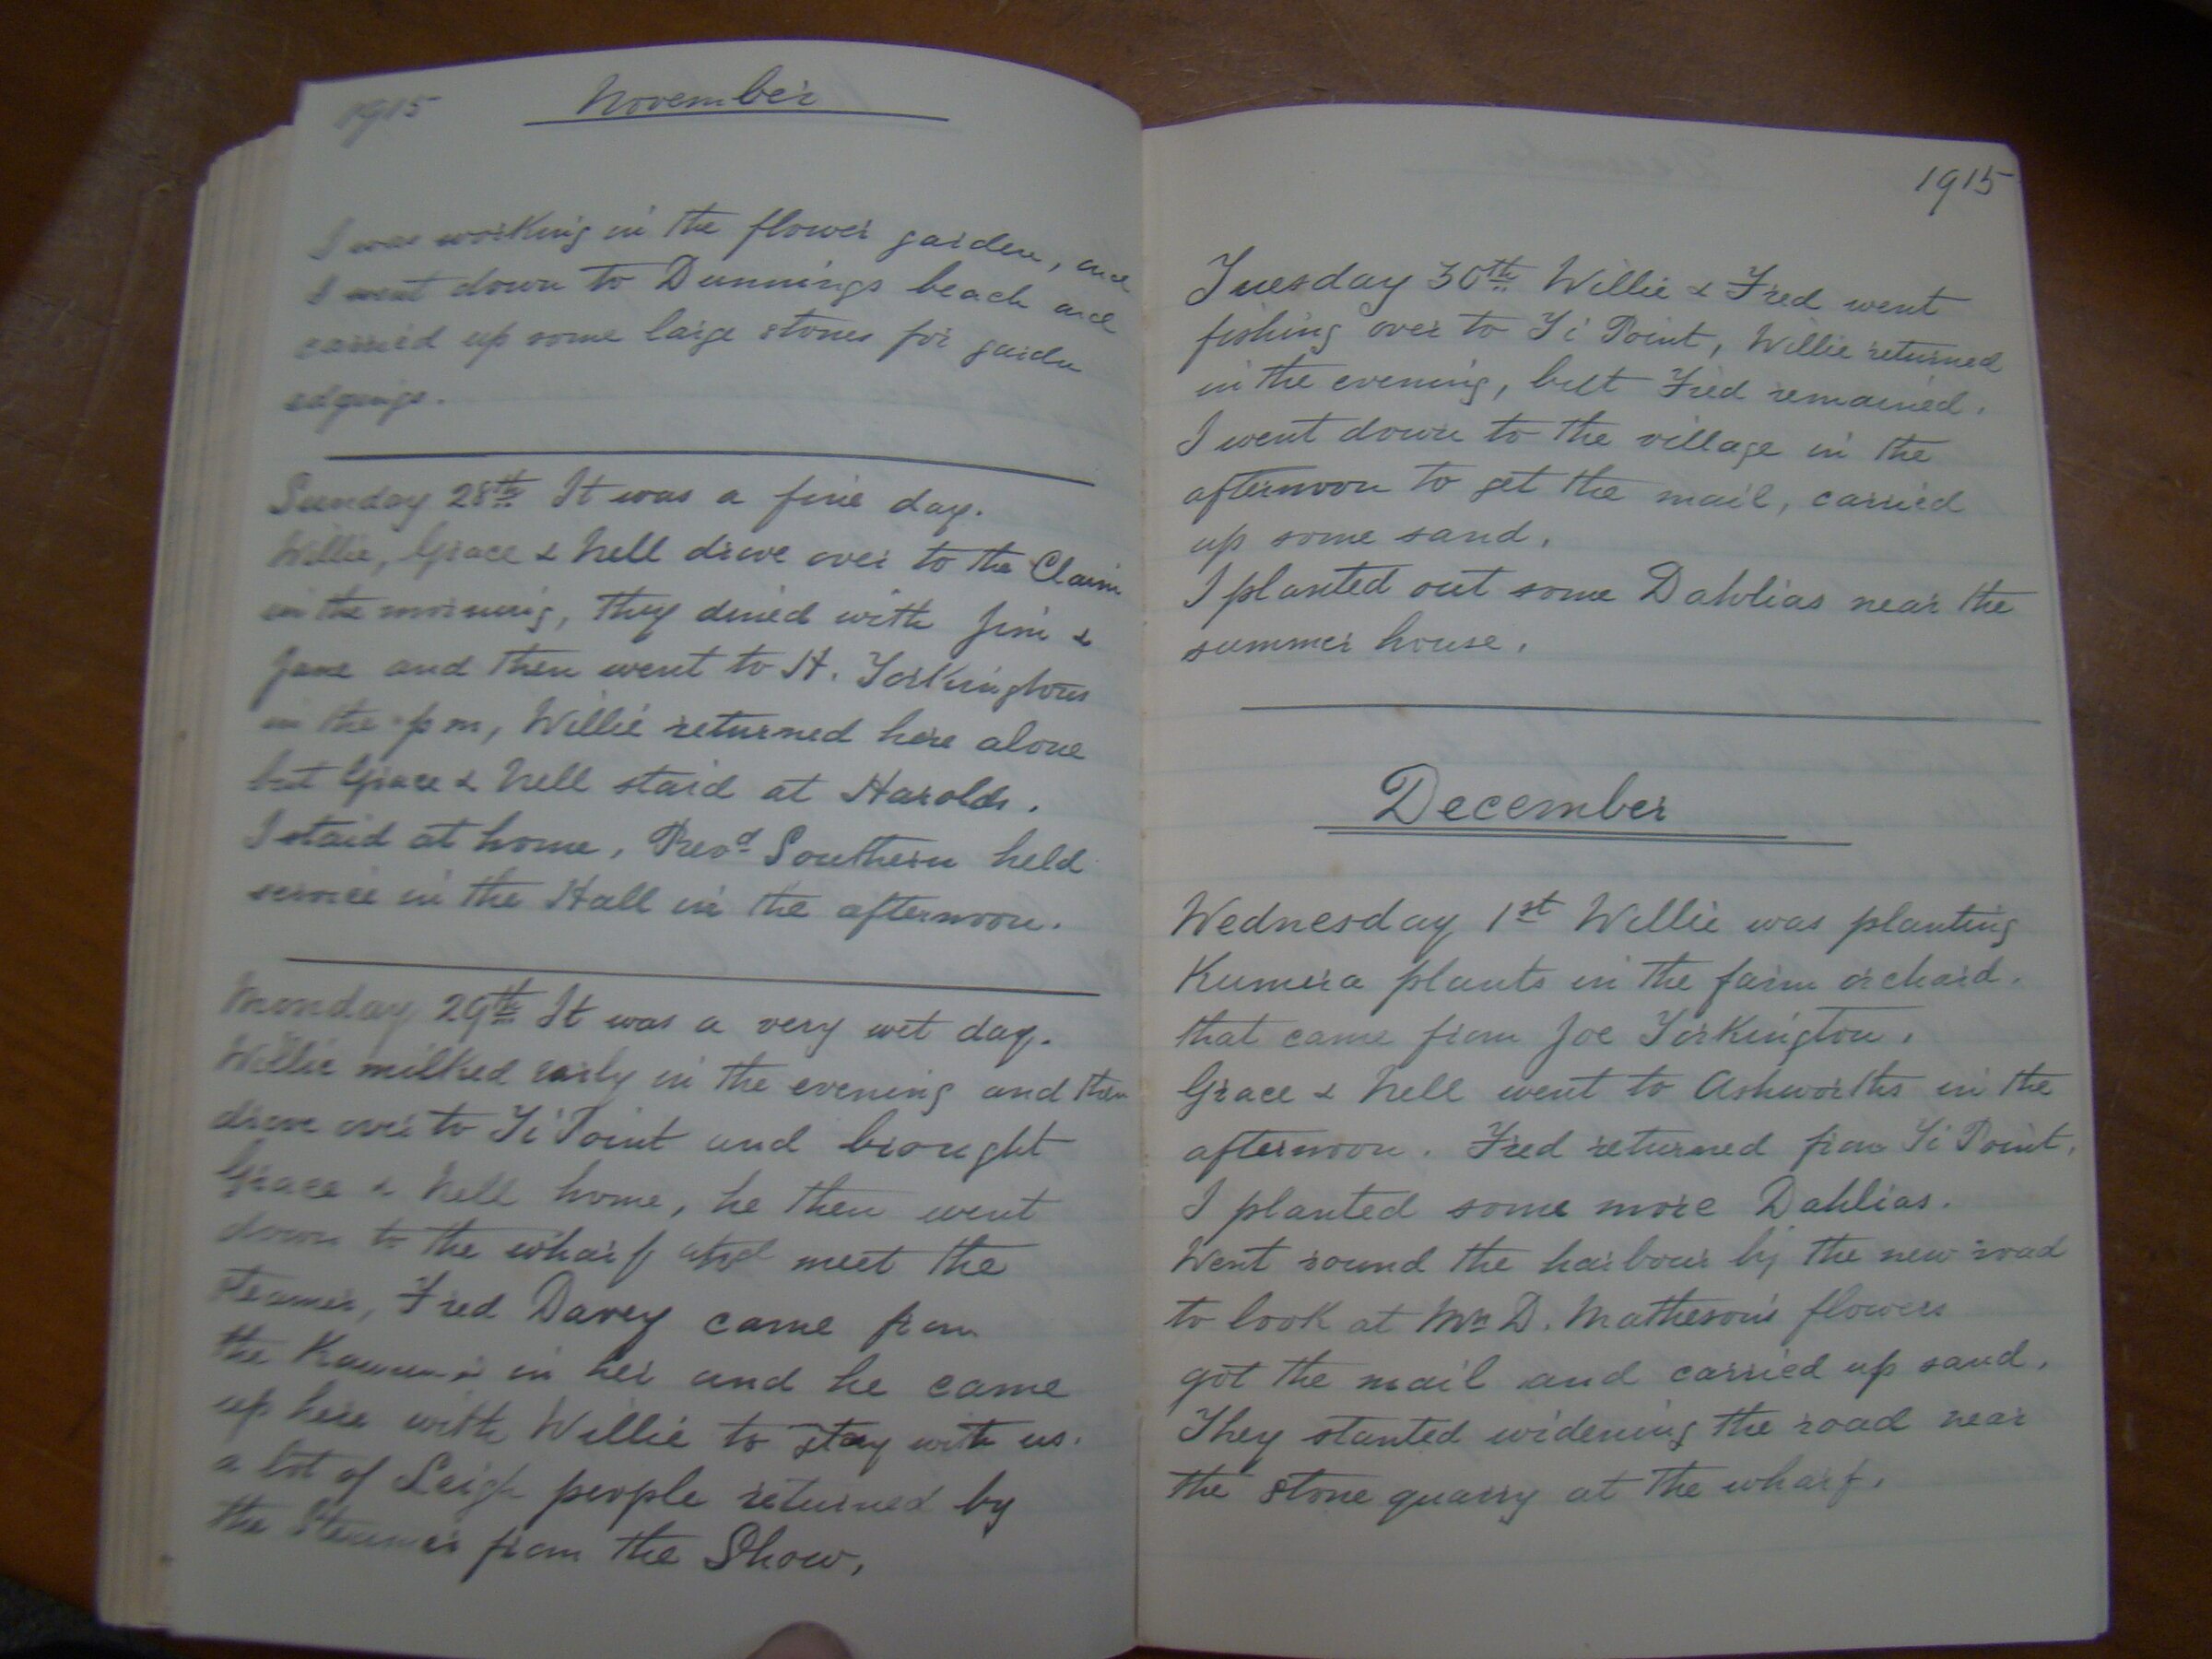 1915 November
I was working in the flower garden, and
I went down to Dunnings beach and
carried up some large stones for garden
edgings.
Sunday 28th It was a fine day.
Willie, Grace & Nell drove over to the Claim
in the morning, they dined with Jim &
Jane and then went to H. Torkingtons
in the p m, Willie returned here alone
but Grace & Nell staid at Harolds.
I staid at home, Revd Southern held
service in the Hall in the afternoon.
Monday 29th It was a very wet day.
Willie milked early in the evening and then
drove over to Ti Point and brought
Grace & Nell home, he then went
down to the wharf and meet the
steamer, Fred Davey came from
the in her and he came
up here with Willie to stay with us.
a lot of Leigh people returned by
the Steamer from the Show,
1915
Tuesday 30th Willie & Fred went
fishing over to Ti Point, Willie returned
in the evening, but Fred remained.
I went down to the village in the
afternoon to get the mail, carried
up some sand.
I planted out some Dahlias near the
summer house.
December
Wednesday 1st Willie was planting
Kumera plants in the farm orchard.
that came from Joe Torkington.
Grace & Nell went to Ashworths in the
afternoon. Fred returned from Ti Point.
I planted some more Dahlias.
Went round the harbour by the new road
to look at D. Matheson's flowers
got the mail and carried up sand.
They started widening the road near
the stone quarry at the wharf.